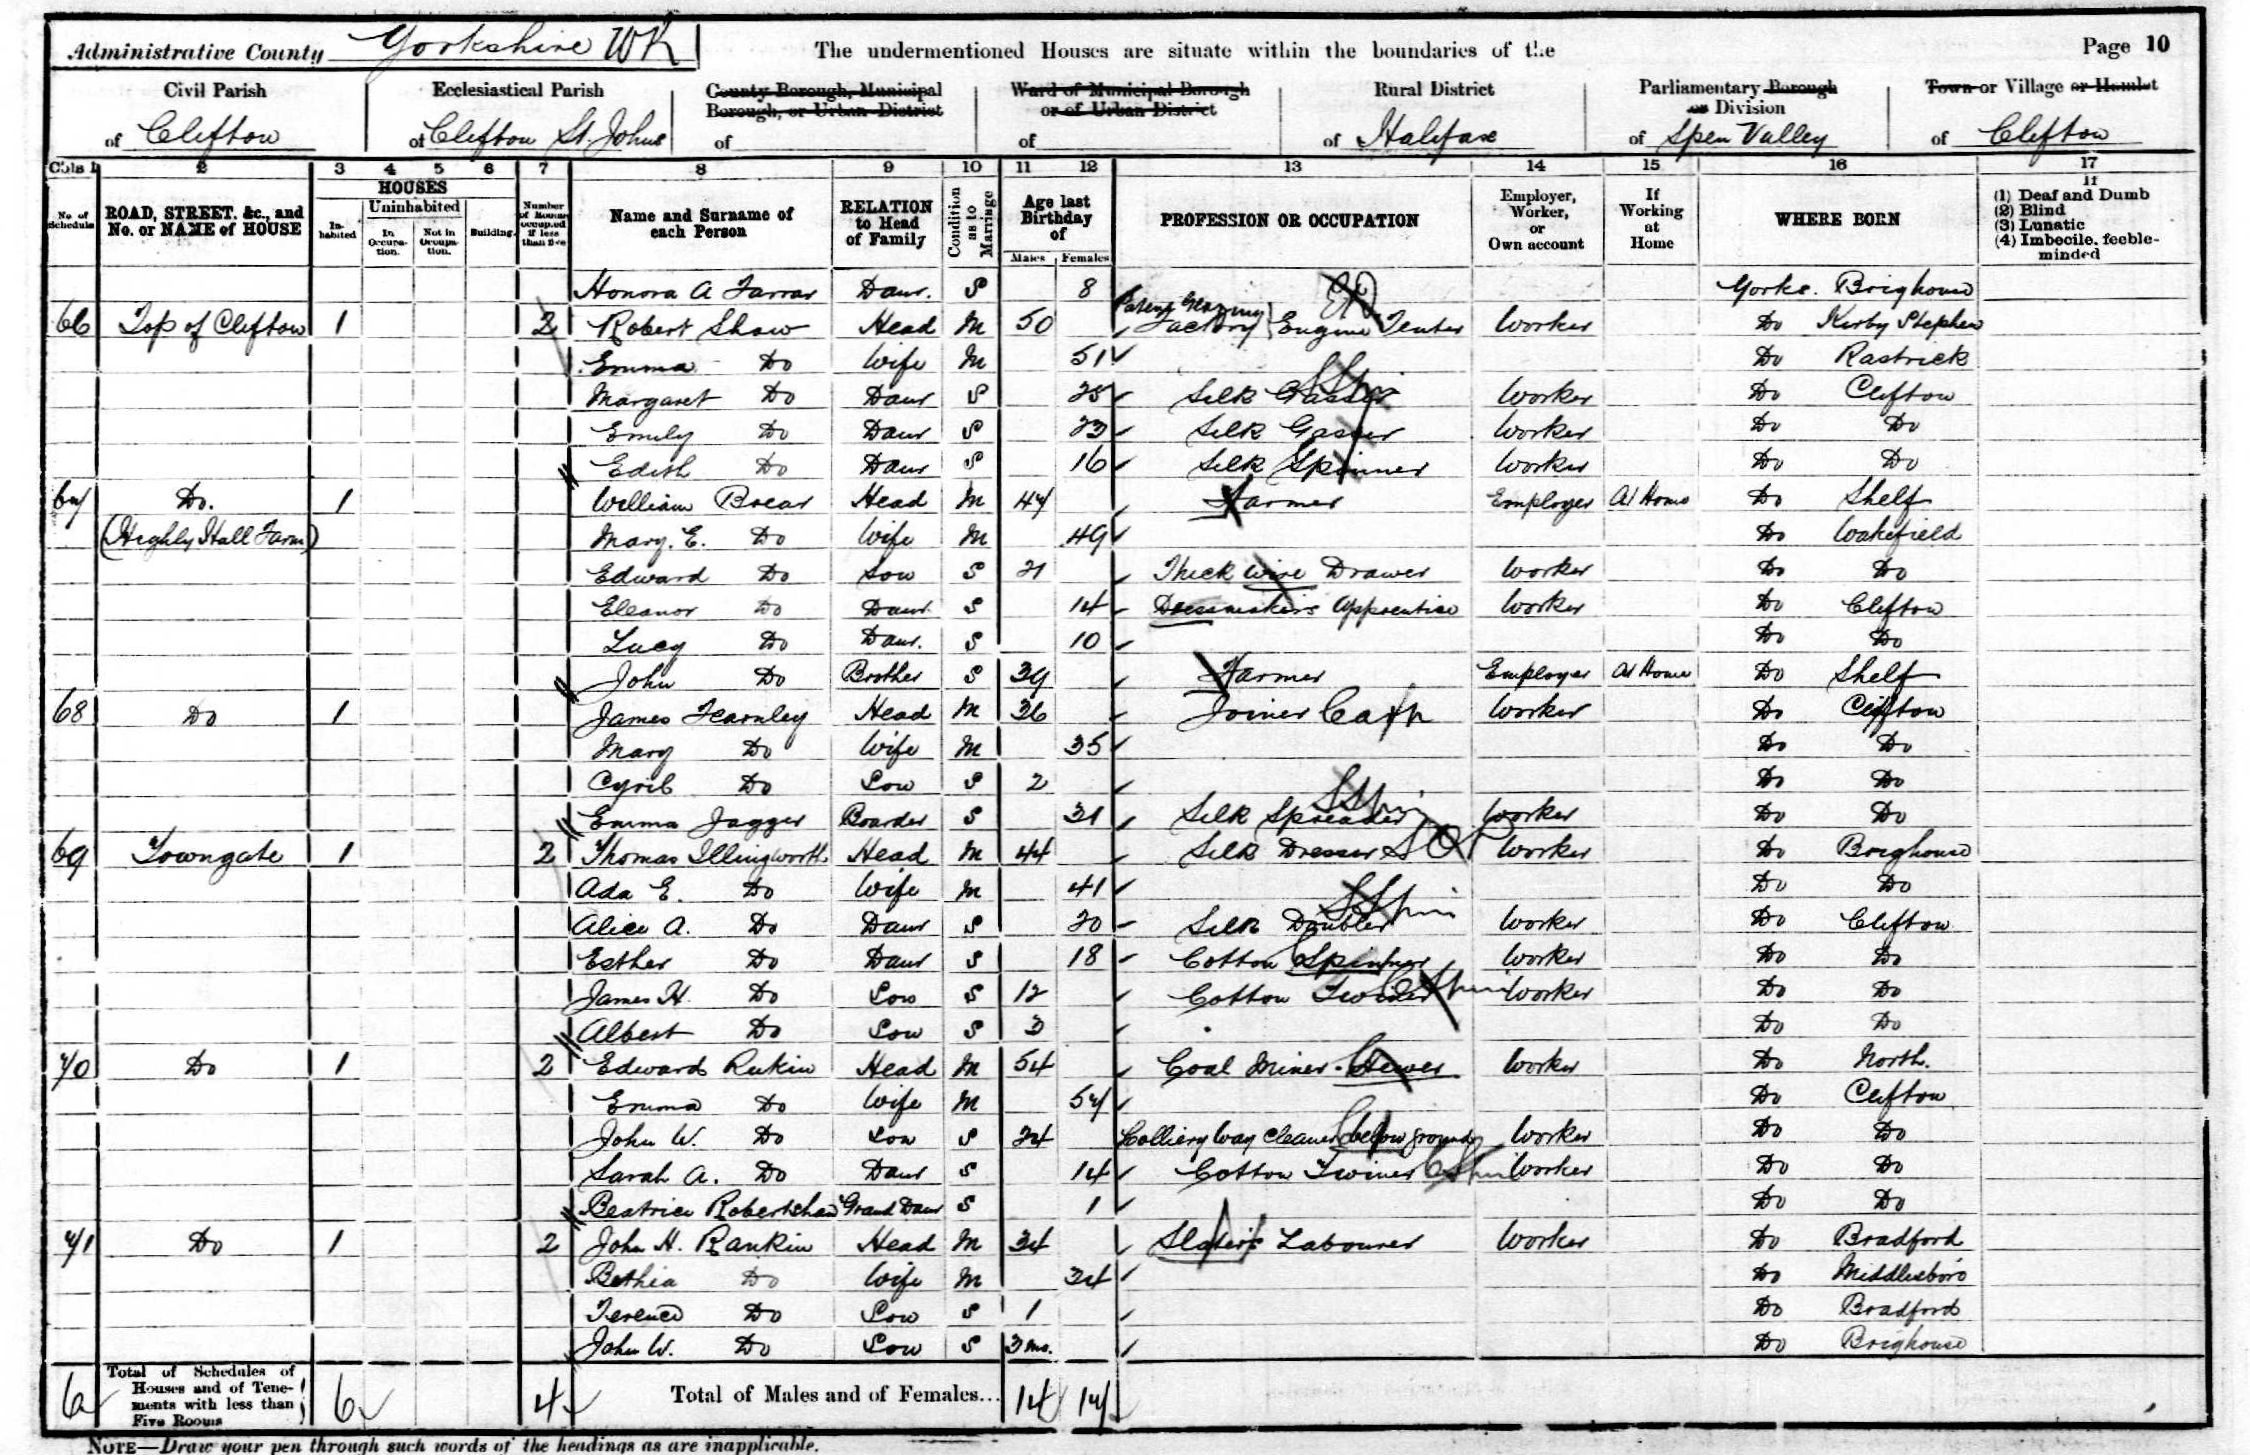 Administrative County Yorkshire WR
The undermentioned Houses are situate within the boundaries of the
Page 10
Civil Parish of Clifton
Ecclesiastical Parish of Clifton St. Johns
County Borough, Municipal Borough, or Urban District of
Ward of Municipal Borough or of Urban District of
Rural District of Halifax
Parliamentary Borough or Division of Spen Valley
Town or Village or Hamlet of Clifton
Cols 1 2 3 4 5 6 7 8 9 10 11 12 13 14 15 16 17
No. of Schedule
ROAD, STREET, &c., and No. or NAME of HOUSE
HOUSES
Inhabited
Uninhabited
In Occupation.
Not in Occupation.
Building.
Number of Rooms occupied if less than five
Name and Surname of each Person
RELATION to Head of Family
Condition as to Marriage
Age last Birthday of
Males Females
PROFESSION OR OCCUPATION
Employer, Worker, or Own account
If Working at Home
WHERE BORN
If
(1) Deaf and Dumb
(2) Blind
(3) Lunatic
(4) Imbecile, feeble-minded
Honora A Farrar Daur. S 8 Yorks. Brighouse
66 Top of Clifton 1 2 Robert Shaw Head M 50 Patent Glazing Factory Engine Tenter Worker Do Kirby Stephen
Emma Do Wife M 51 Do Rastrick
Margaret Do Daur S 25 Silk Gasser S Spin Worker Do Clifton
Emily Do Daur S 23 Silk Gasser Worker Do Do
Edith Do Daur S 16 Silk Spinner Worker Do Do
67 Do. 1 William Brear Head M 47 Farmer Employer At Home Do Shelf
(Highly Hall Farm) Mary. E. Do Wife M 49 Do Wakefield
Edward Do Son S 21 Thick Wire Drawer Worker Do Do
Eleanor Do Daur. S 14 Dressmakers Apprentice Worker Do Clifton
Lucy Do Daur. S 10 Do Do
John Do Brother S 39 Farmer Employer At Home Do Shelf
68 Do 1 James Fearnley Head M 36 Joiner Carp Worker Do Clifton
Mary Do Wife M 35 Do Do
Cyril Do Son S 2 Do Do
Emma Jagger Boarder S 31 Silk Spreader S Spin Worker Do Do
69 Towngate 1 2 Thomas Illingworth Head M 44 Silk Dresser Worker Do Brighouse
Ada E. Do Wife M 41 Do Do
Alice A. Do Daur S 20 Silk Doubler S Spin Worker Do Clifton
Esther Do Daur S 18 Cotton Spinner Worker Do Do
James H. Do Son S 12 Cotton C Spin Worker Do Do
Albert Do Son S 3 Do Do
70 Do 1 2 Edward Rukin Head M 54 Coal Miner - Hewer Worker Do North.
Emma Do Wife M 57 Do Clifton
John W. Do Son S 24 Colliery Way Cleaner below ground Worker Do Do
Sarah A. Do Daur S 14 Cotton Twiner C Spin Worker Do Do
Beatrice Robertshaw Grand Daur S 1 Do Do
71 Do 1 2 John H. Rankin Head M 34 Slater's Labourer Worker Do Bradford
Bethia Do Wife M 34 Do Middlesboro
Terence Do Son S 1 Do Bradford
John W. Do Son S 3 mo. Do Brighouse
6 Total of Schedules of Houses and of Tenements with less than Five Rooms 6 4 Total of Males and of Females... 14 17
NOTE—Draw your pen through such words of the headings as are inapplicable.